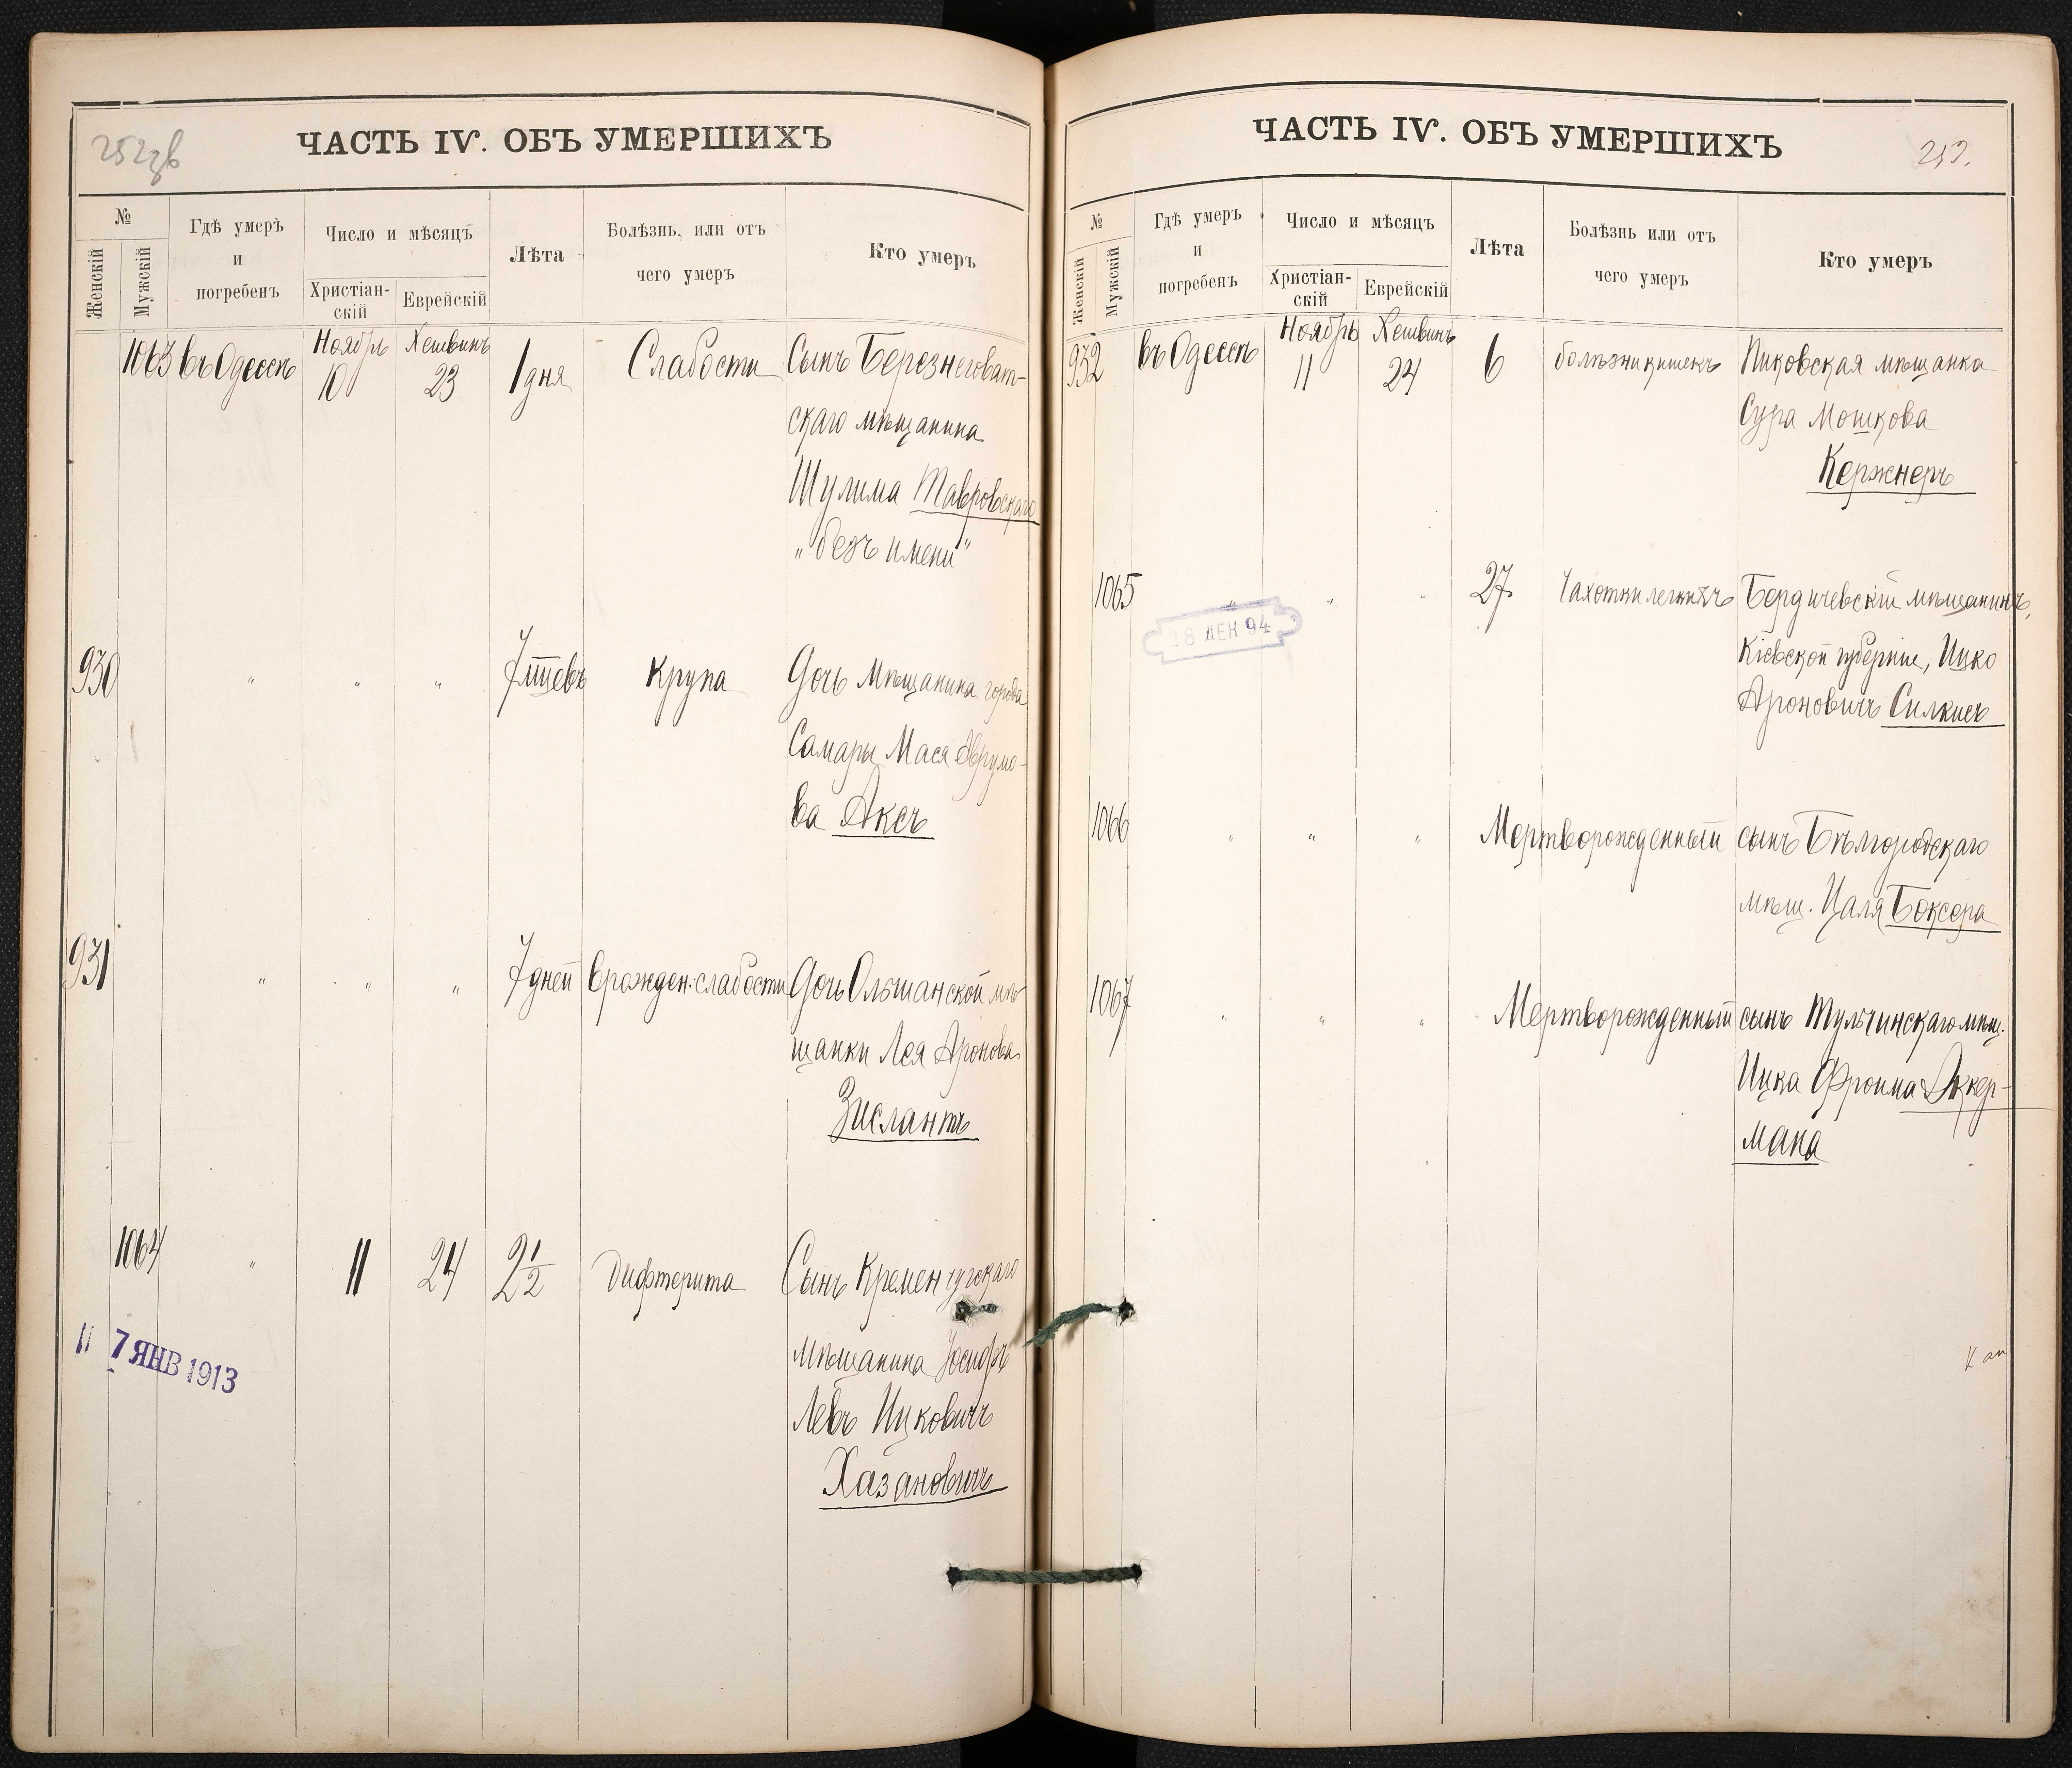 252 об
ЧАСТЬ IV. ОБЪ УМЕРШИХЪ
№
Женскій
Мужскій
Гдѣ умеръ и погребенъ
Число и мѣсяцъ
Христіан-скій
Еврейскій
Лѣта
Болѣзнь, или отъ чего умеръ
Кто умеръ
1063 въ Одессѣ Ноябрь 10 Хешвинъ 23 1 дня Слабости Сынъ Березнеговат-
скаго мѣщанина
Шулима Тавровскаго
„безъ имени"
930 " " " 7 мцевъ Крупа Дочь Мѣщанина города
Самары Мася Аврумо-
ва Аксъ
931 " " " 7 дней Врожден: слабости Дочь Ольшанской мѣ-
щанки Лея Аронова
Зислантъ
1064 " 11 24 2 1/2 Дифтерита Сынъ Кременчугскаго
мѣщанина Іосифъ
Левъ Ицковичъ
Хазановичъ
7 ЯНВ 1913
ЧАСТЬ IV. ОБЪ УМЕРШИХЪ
253.
№
Женскій
Мужскій
Гдѣ умеръ и погребенъ
Число и мѣсяцъ
Христіан-скій
Еврейскій
Лѣта
Болѣзнь или отъ чего умеръ
Кто умеръ
932 въ Одессѣ Ноябрь 11 Хешвинъ 24 6 болѣзни кишекъ Пиковская мѣщанка
Сура Мошкова
Кержнеръ
1065 " " " 27 Чахотки легкихъ Бердичевскій мѣщанинъ,
Кіевской губерніи, Ицко
Ароновичъ Силкисъ
28 ДЕК 94
1066 " " " Мертворожденный сынъ Бѣлгородскаго
мѣщ. Цаля Боксера
1067 " " " Мертворожденный сынъ Тульчинскаго мѣщ.
Ицка Фроима Аккер-
мана